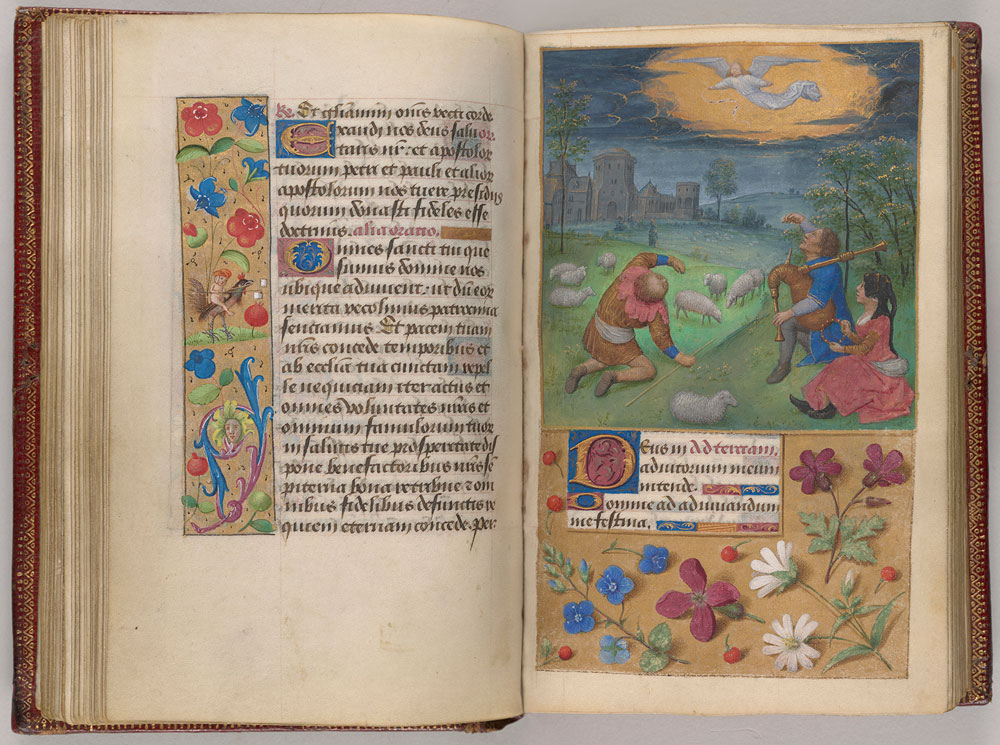 Et gliamini om̄s recti corde
Exaudi nos deus salu or
taris nr̄: et apostolor
tuorum petri et pauli et alior
apostolorum nos tuere presidiis
quorum donasti fideles esse
doctrinis. alia oratio.
Omnes sancti tui que
sumus domine nos
ubique adiuuent: ut dū eor
merita recolimus patrocinia
sentiamus. Et pacem tuam
nr̄is concede temporibus et
ab ecc̄lia tua cunctam repel
le nequiciam iter actus et
omnes voluntates nr̄as et
omnium famulorum tuor
in salutis tue prosperitate dis
pone benefactoribus nr̄is sē
piterna bona retribue ⁊ om
nibus fidelibus defunctis re
quiem eternam concede. per
Deus in Ad terciam.
adiutorium meum
intende.
Domine ad adiuuandum
me festina.